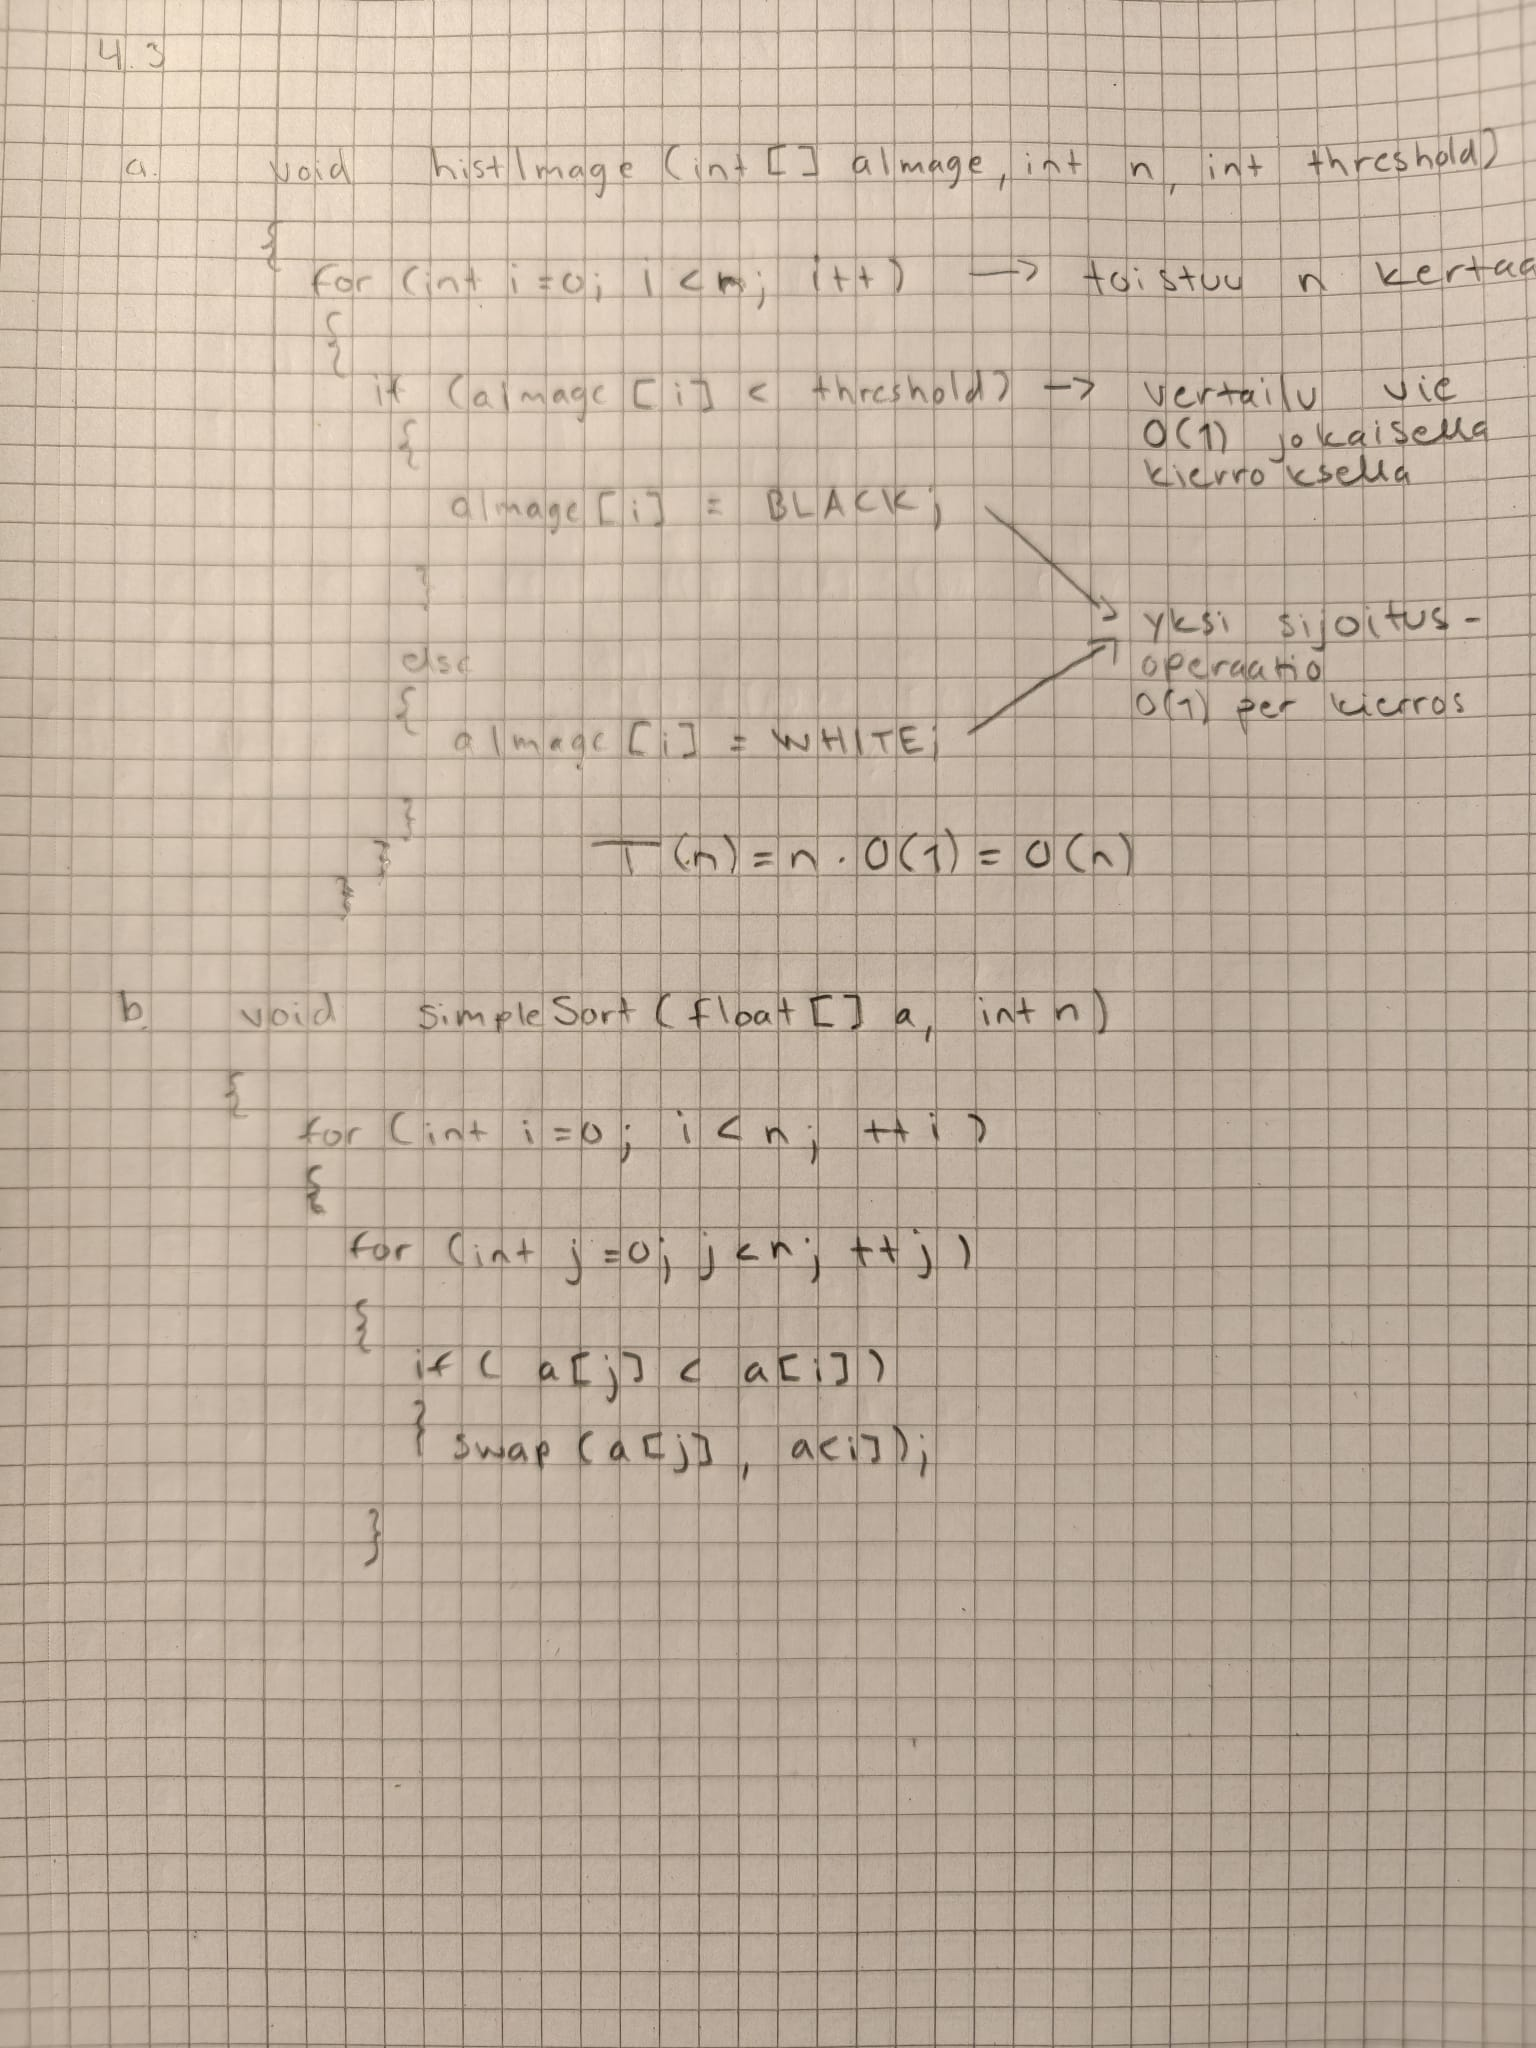 4.3
a. void histImage (int [] aImage, int n, int threshold)
{
for (int i=0; i<n; i++) → toistuu n kertaa
{
if (aImage [i] < threshold) → vertailu vie
O(1) jokaisella
kierroksella
{
aImage [i] = BLACK;
}
yksi sijoitus-
operaatio
O(1) per kierros
else
{
aImage [i] = WHITE;
}
}
}
T(n) = n · O(1) = O(n)
b. void simpleSort (float [] a, int n)
{
for (int i=0; i<n; ++i)
{
for (int j=0; j<n; ++j)
{
if ( a[j] < a[i])
} swap (a[j], a<i]);
}